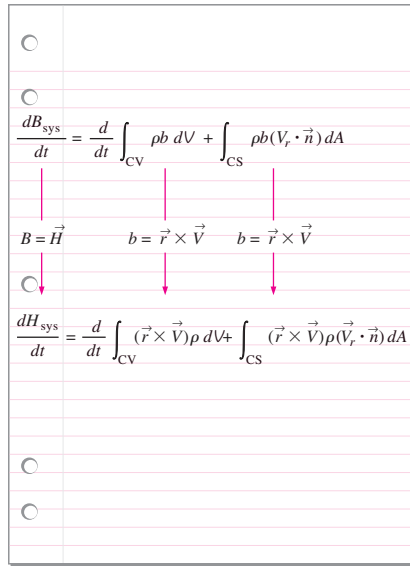 dB_sys/dt = d/dt ∫_CV ρb dV + ∫_CS ρb(V_r · n⃗) dA
B = H⃗ b = r⃗ × V⃗ b = r⃗ × V⃗
dH_sys/dt = d/dt ∫_CV (r⃗ × V⃗)ρ dV + ∫_CS (r⃗ × V⃗)ρ(V⃗_r · n⃗) dA